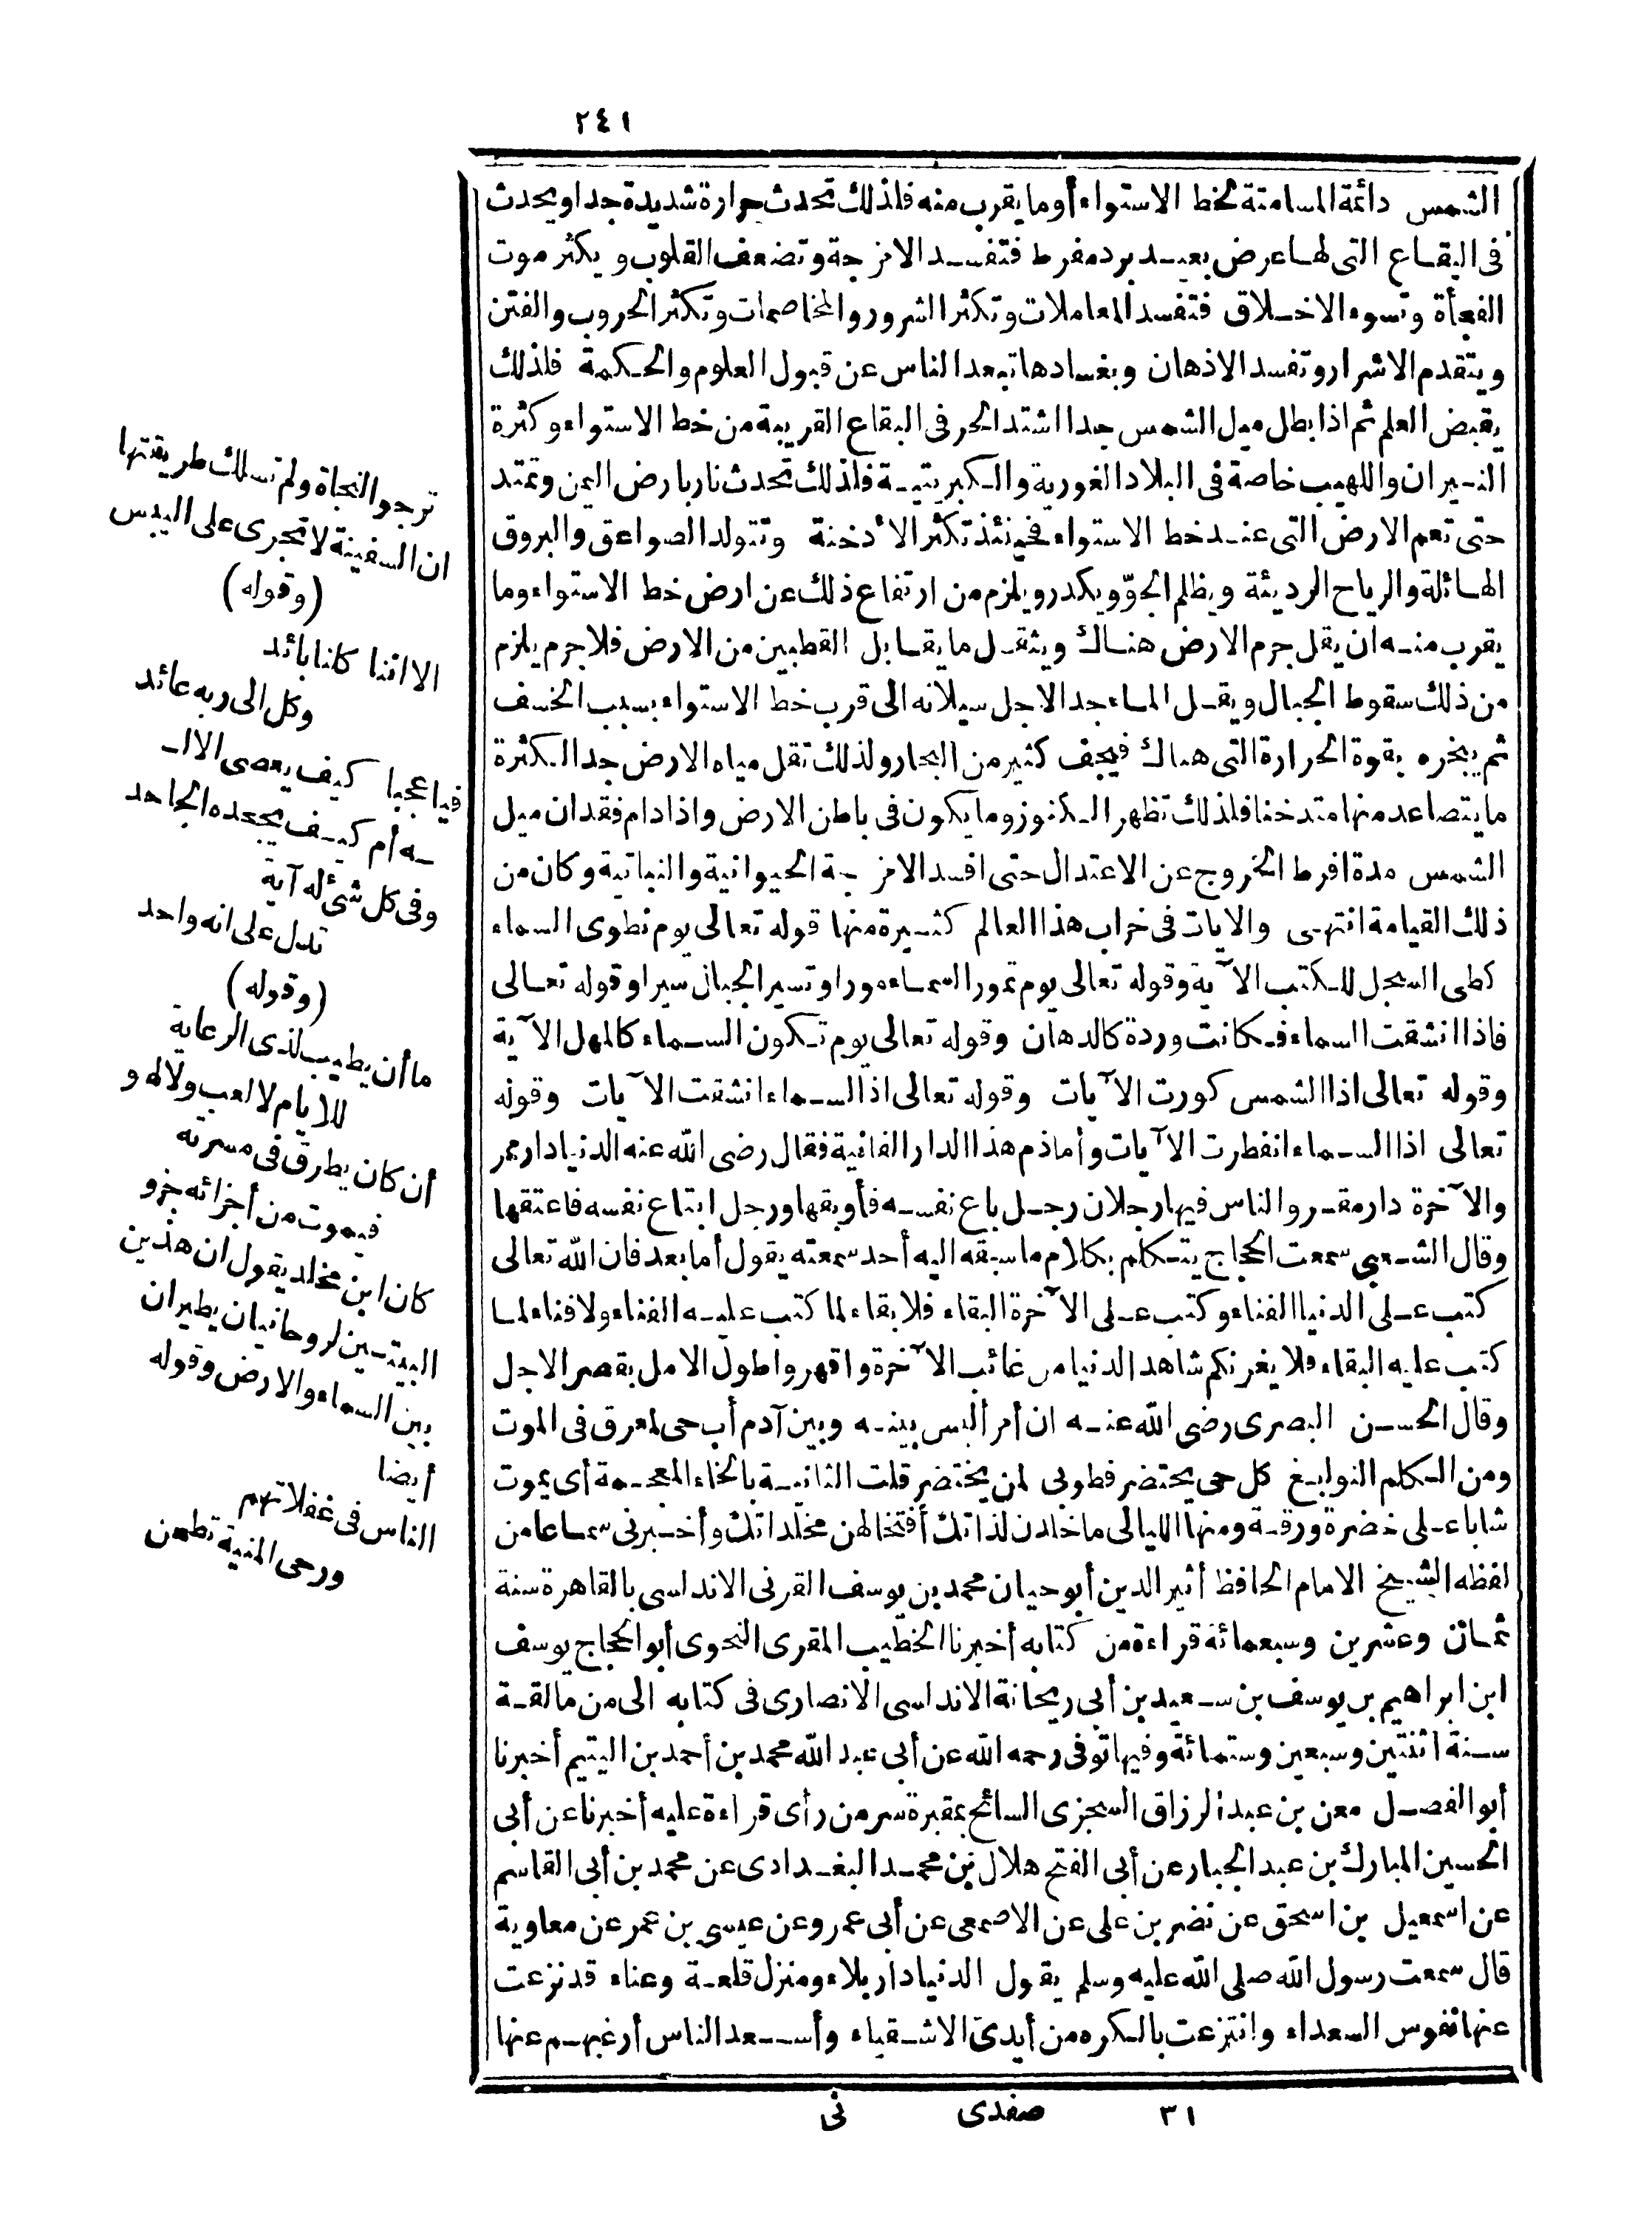 ٢٤١
الشمس دائمة المسامتة لخط الاستواء أو ما يقرب منه فلذلك تحدث حرارة شديدة جدا ويحدث
فى البقاع التى لها عرض بعيد برد مفرط فتفسد الامزجة وتضعف القلوب ويكثر موت
الفجأة وتسوء الاخلاق فتفسد المعاملات وتكثر الشرور والمخاصمات وتكثر الحروب والفتن
ويتقدم الاشرار وتفسد الاذهان وبفسادها تبعد الناس عن قبول العلوم والحكمة فلذلك
يقبض العلم ثم اذا بطل ميل الشمس جدا اشتد الحر فى البقاع القريبة من خط الاستواء وكثرة
النيران واللهيب خاصة فى البلاد الغورية والكبريتية فلذلك تحدث نار بارض اليمن وتمتد
حتى تعم الارض التى عند خط الاستواء فحينئذ تكثر الأدخنة وتتولد الصواعق والبروق
الهائلة والرياح الرديئة ويظلم الجوّ ويكدر ويلزم من ارتفاع ذلك عن ارض خط الاستواء وما
يقرب منه ان يقل جرم الارض هناك ويثقل ما يقابل القطبين من الارض فلا جرم يلزم
من ذلك سقوط الجبال ويقل الماء جدا لاجل سيلانه الى قرب خط الاستواء بسبب الخسف
ثم يبخره بقوة الحرارة التى هناك فيجف كثير من البحار ولذلك تقل مياه الارض جدا لكثرة
ما يتصاعد منها متدخنا فلذلك تظهر الكنوز وما يكون فى باطن الارض واذا دام فقدان ميل
الشمس مدة افرط الخروج عن الاعتدال حتى افسد الامزجة الحيوانية والنباتية وكان من
ذلك القيامة انتهى والايات فى خراب هذا العالم كثيرة منها قوله تعالى يوم نطوى السماء
كطى السجل للكتب الآية وقوله تعالى يوم تمور السماء مورا وتسير الجبال سيرا وقوله تعالى
فاذا انشقت السماء فكانت وردة كالدهان وقوله تعالى يوم تكون السماء كالمهل الآية
وقوله تعالى اذا الشمس كورت الآيات وقوله تعالى اذا السماء انشقت الآيات وقوله
تعالى اذا السماء انفطرت الآيات وأما ذم هذا الدار الفانية فقال رضى الله عنه الدنيا دار ممر
والآخرة دار مقر والناس فيها رجلان رجل باع نفسه فأوبقها ورجل ابتاع نفسه فاعتقها
وقال الشعبي سمعت الحجاج يتكلم بكلام ما سبقه اليه أحد سمعته يقول أما بعد فان الله تعالى
كتب على الدنيا الفناء وكتب على الآخرة البقاء فلا بقاء لما كتب عليه الفناء ولا فناء لما
كتب عليه البقاء فلا يغرنكم شاهد الدنيا من غائب الآخرة واقهروا طول الامل بقصر الاجل
وقال الحسن البصرى رضى الله عنه ان أمرأ ليس بينه وبين آدم أب حى لمعرق فى الموت
ومن الكلم النوابغ كل حى يحتضر فطوبى لمن يختضر قلت الثانية بالخاء المعجمة أى يموت
شابا على خضرة ورقة ومنها الليالى ما خلدن لذاتك أفتخالهن مخلداتك وأخبرنى سماعا من
لفظه الشيخ الامام الحافظ أثير الدين أبو حيان محمد بن يوسف القرنى الاندلسى بالقاهرة سنة
ثمان وعشرين وسبعمائة قراءة من كتابه أخبرنا الخطيب المقرى النحوى أبو الحجاج يوسف
ابن ابراهيم بن يوسف بن سعيد بن أبى ريحانة الاندلسى الانصارى فى كتابه الى من مالقة
سنة اثنتين وسبعين وستمائة وفيها توفى رحمه الله عن أبى عبد الله محمد بن أحمد بن اليتيم أخبرنا
أبو الفضل معن بن عبد الرزاق السجزى السائح بمقبرة سر من رأى قراءة عليه أخبرنا عن أبى
الحسين المبارك بن عبد الجبار عن أبى الفتح هلال بن محمد البغدادى عن محمد بن أبى القاسم
عن اسمعيل بن اسحق عن نضر بن على عن الاصمعى عن أبى عمرو عن عيسى بن عمر عن معاوية
قال سمعت رسول الله صلى الله عليه وسلم يقول الدنيا دار بلاء ومنزل قلعة وعناء قد نزعت
عنها نفوس السعداء وانتزعت بالكره من أيدى الاشقياء وأسعد الناس أرغبهم عنها
٣١ صفدى نى
ترجو النجاة ولم تسلك طريقتها
ان السفينة لا تجرى على اليبس
(وقوله)
الا اننا كلنا بائد
وكل الى ربه عائد
فيا عجبا كيف يعصى الالـ
ـه أم كيف يجحده الجاحد
وفى كل شئ له آية
تدل على انه واحد
(وقوله)
ما أن يطيب لذى الرعاية
للايام لا لعب ولا لهو
أن كان يطرق فى مسرته
فيموت من أجزائه جزو
كان ابن مخلد يقول ان هذين
البيتين لروحانيان يطيران
بين السماء والارض وقوله
أيضا
الناس فى غفلاتهم
ورحى المنية تطحن